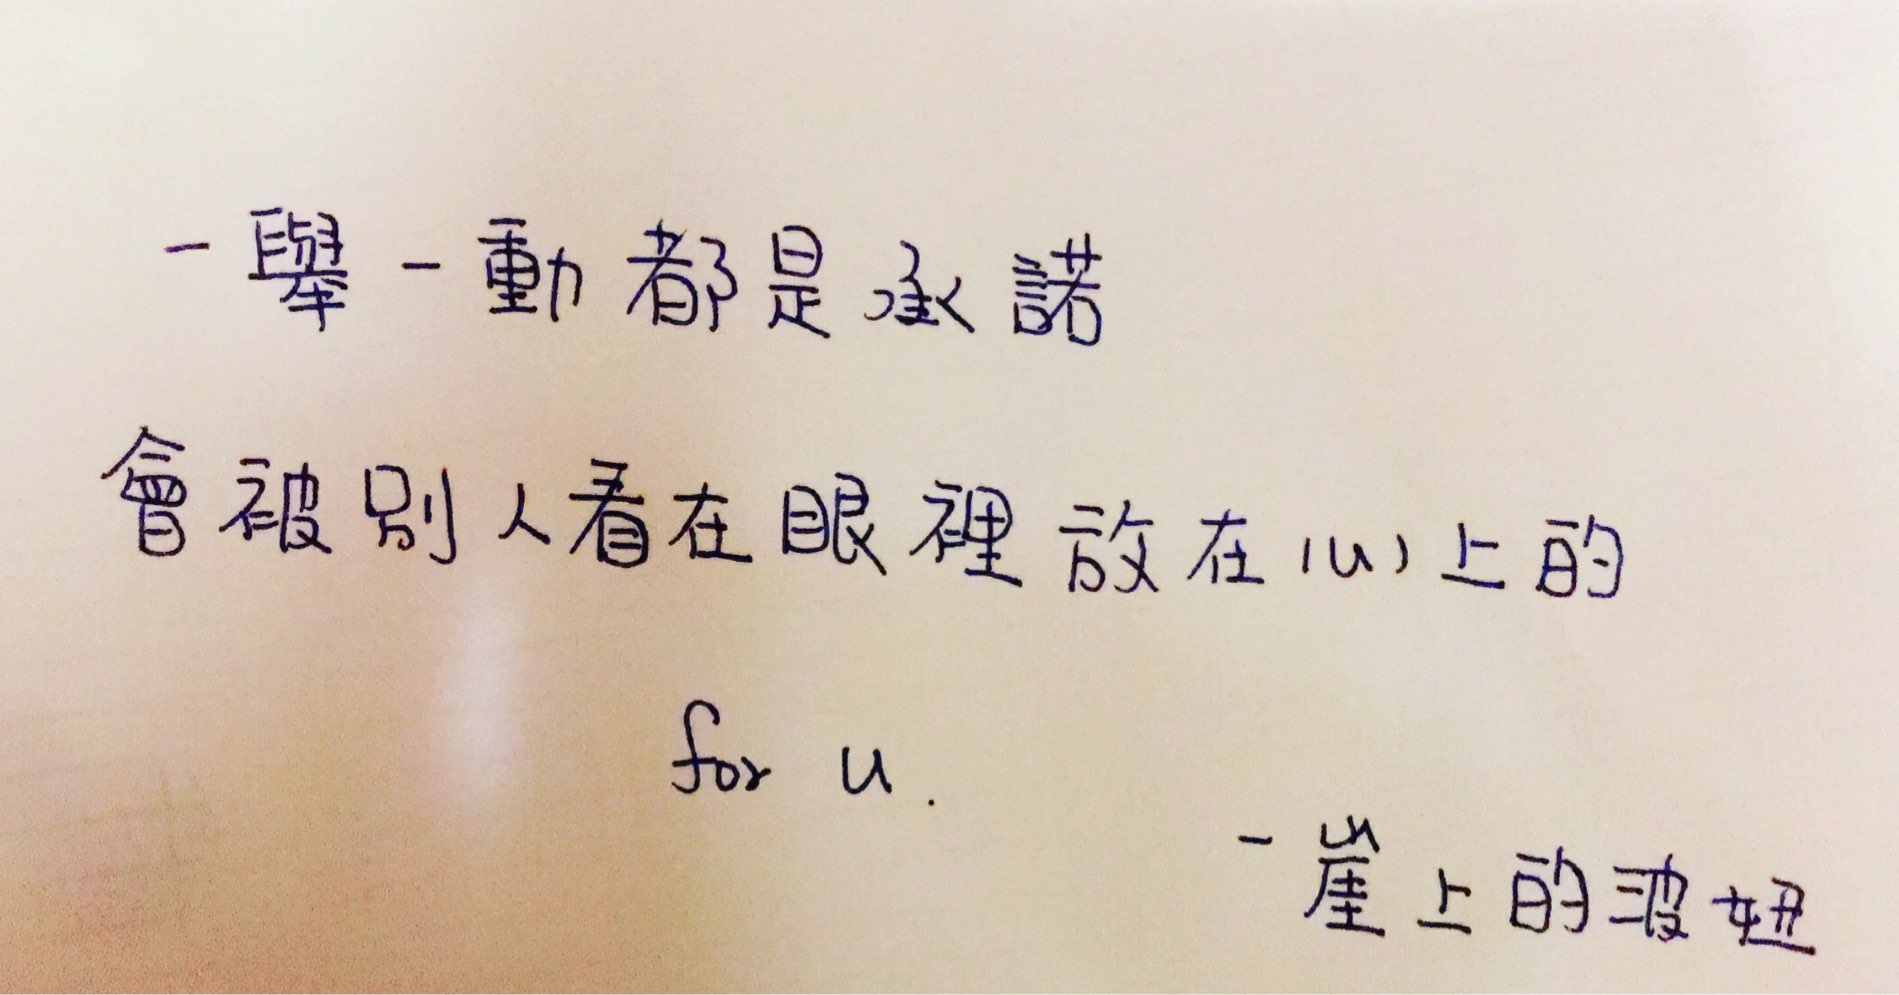 一舉一動都是承諾
會被別人看在眼裡放在心上的
for u.
-崖上的波妞